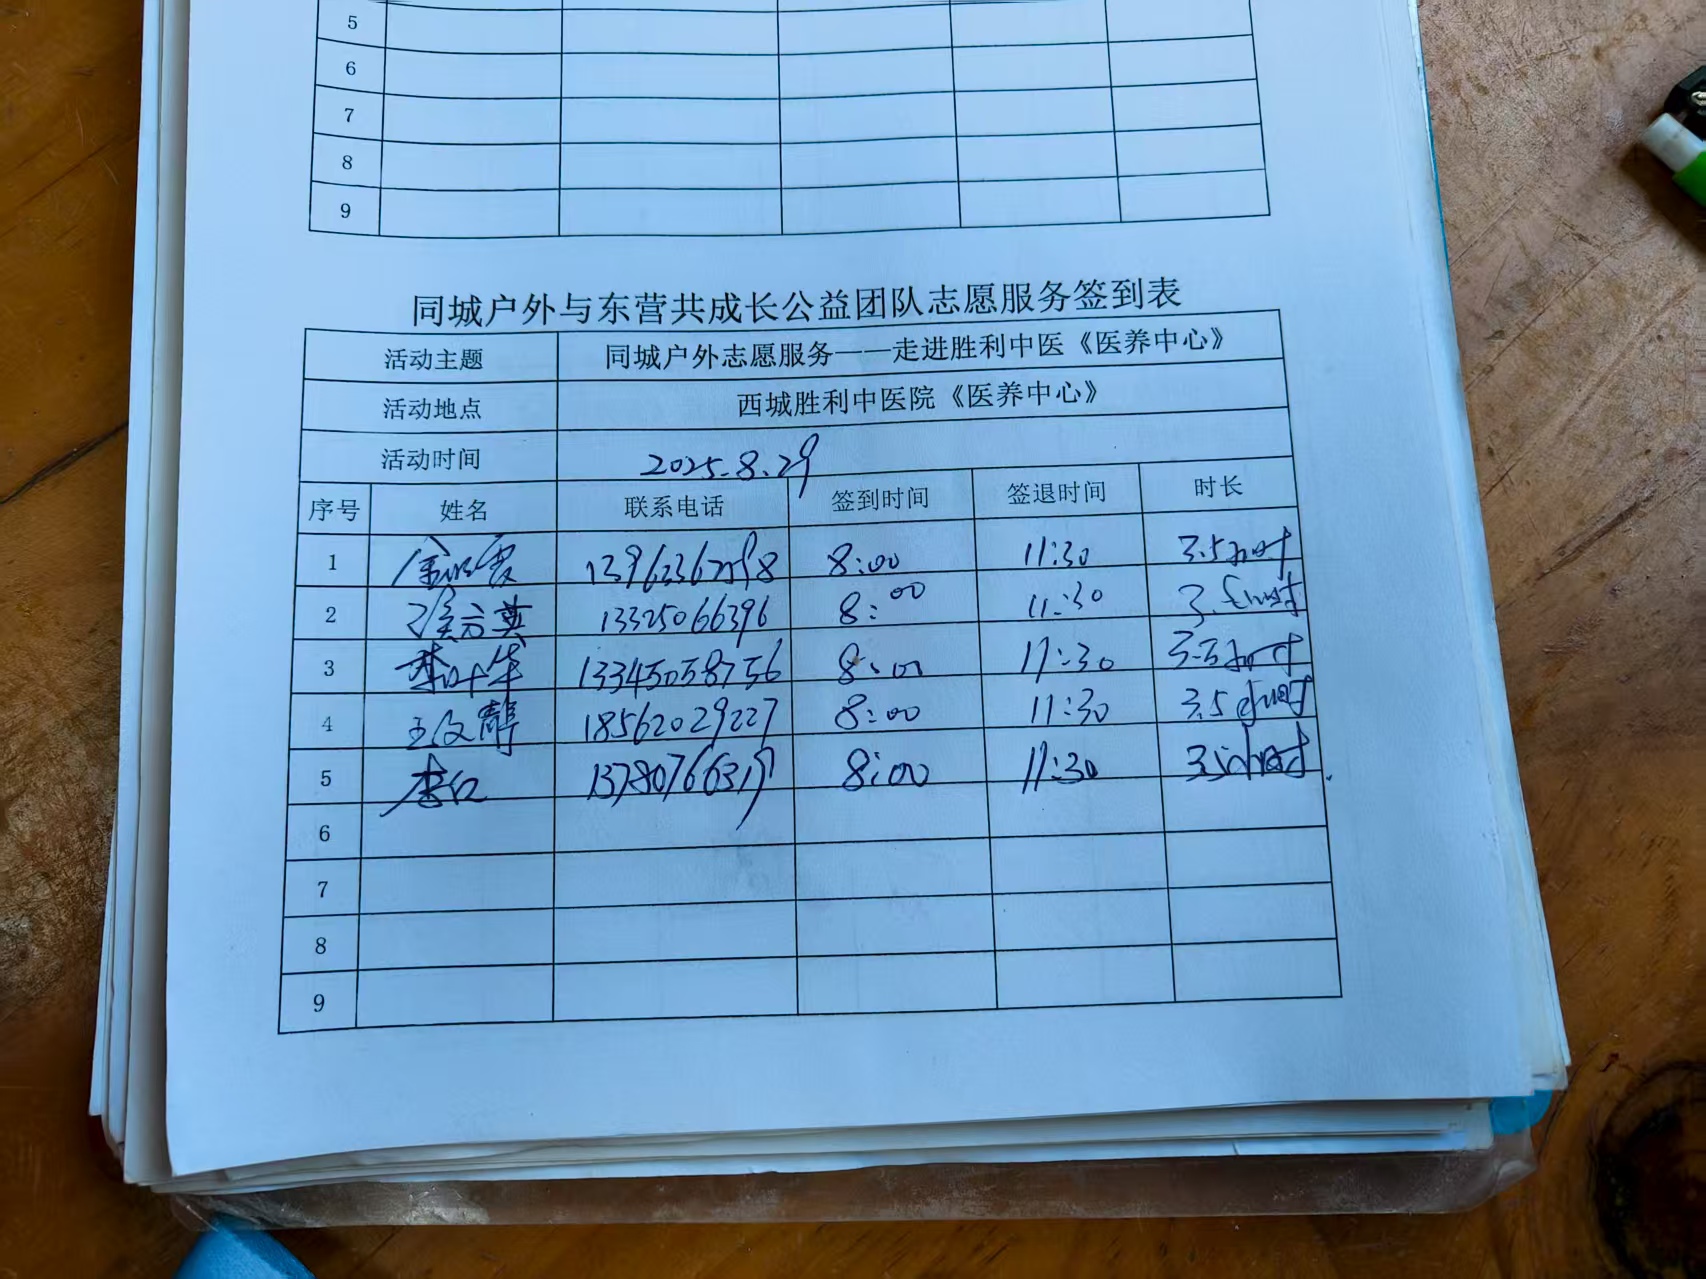 5
6
7
8
9
同城户外与东营共成长公益团队志愿服务签到表
活动主题 同城户外志愿服务——走进胜利中医《医养中心》
活动地点 西城胜利中医院《医养中心》
活动时间 2025.8.29
序号 姓名 联系电话 签到时间 签退时间 时长
1 8:00 11:30 3.5小时
2 13325066396 8:00 11:30 3.5小时
3 李叶华 13345058756 8:00 11:30 3.5小时
4 王文静 18562029227 8:00 11:30 3.5小时
5 8:00 11:30 3.5小时
6
7
8
9